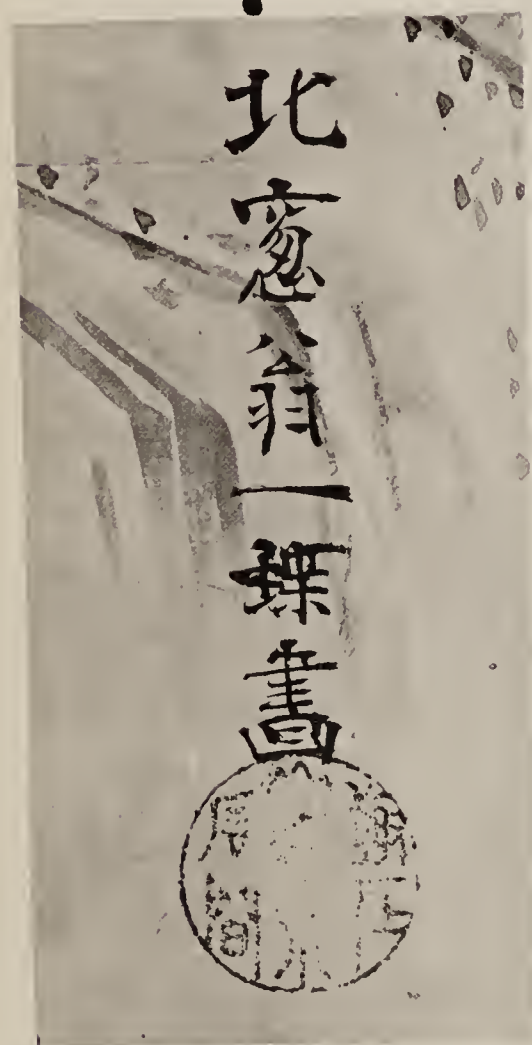 北窻翁一蝶畫